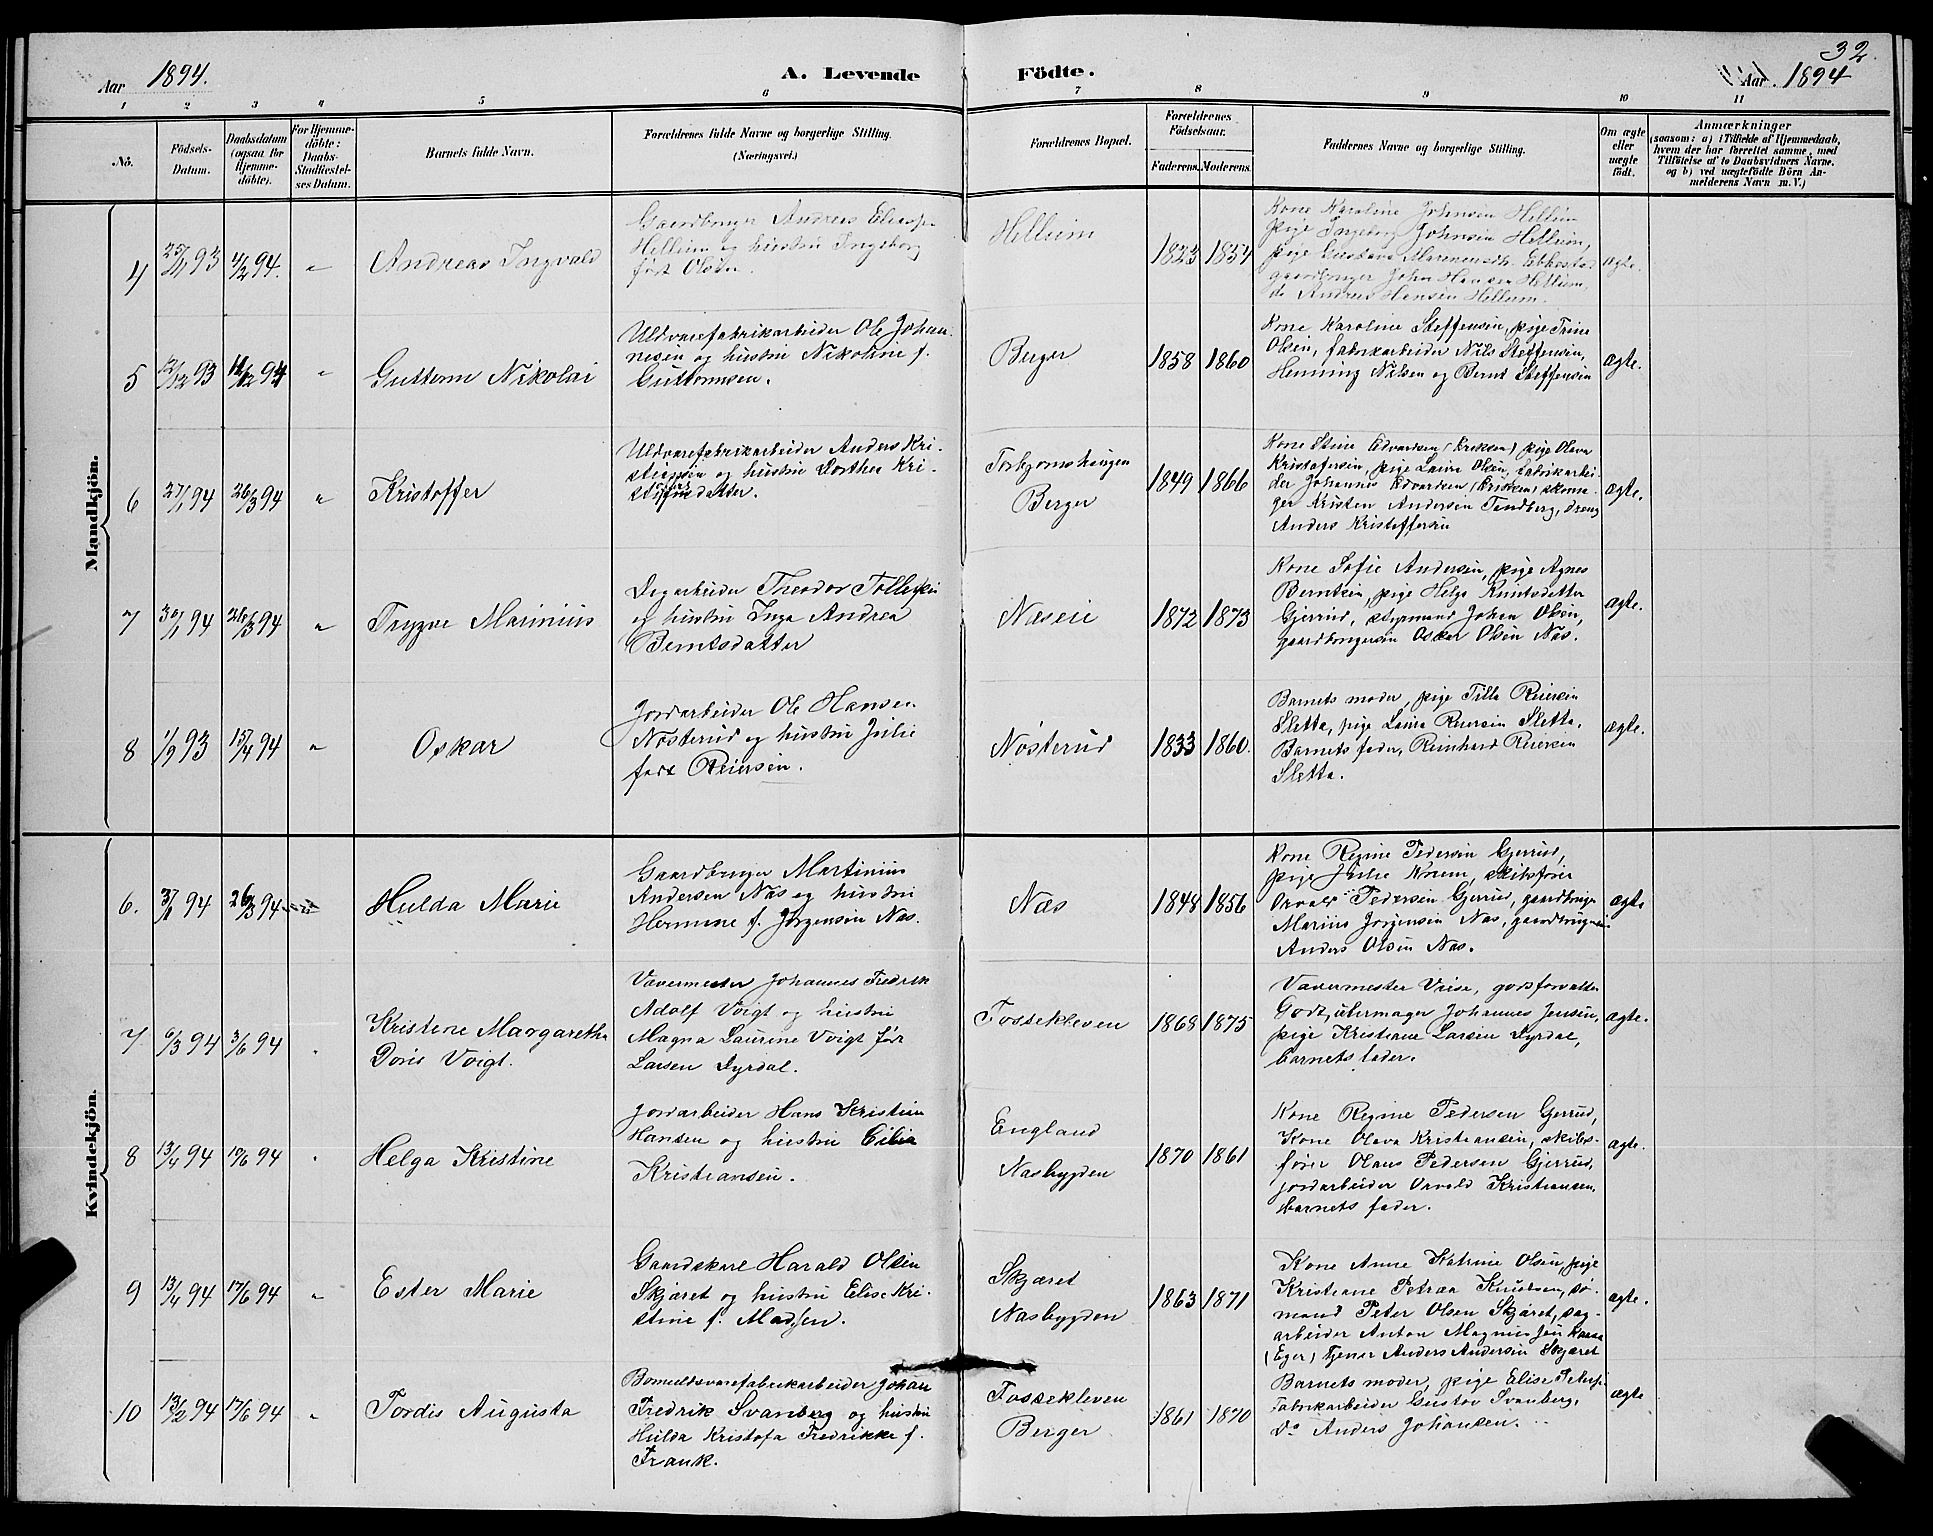 Aar 1894.
A. Levende Födte.
32.
Aar 1894
1 2 3 4 5 6 7 8 9 10 11
No.
Födsels-
Datum.
Daabsdatum
(ogsaa for
Hjemme-
döbte).
For Hjemme-
döbte:
Daabs-
Stadfæstel-
ses Datum.
Barnets fulde Navn.
Forældrenes fulde Navne og borgerlige Stilling.
(Næringsvei.)
Forældrenes Bopæl.
Forældrenes
Födselsaar.
Faderens. Moderens.
Faddernes Navne og borgerlige Stilling.
Om ægte
eller
uægte
födt.
Anmærkninger
(saasom: a) i Tilfælde af Hjemmedaab,
hvem der har forrettet samme, med
Tilføielse af to Daabsvidners Navne.
og b) ved uægtefödte Börn An-
melderens Navn m. V.)
Mandkjön.
4 25/11 93 4/2 94. " Andreas Ingvald
Gaardbruger Andreas
Hellum og hustru Ingeborg
født Olsen.
Hellum
1823 1854
Kone Karoline Johnsen Hellum
pige Ingeborg Johnsen Hellum,
pige Gustava
gaardbruger John Hansen Hellum,
do Andreas Hansen Hellum.
ægte.
5 12/12 93 11/2 94 " Guttorm Nikolai
Uldvarefabrikarbeider Ole Johan-
nesen og hustru Nikoline f.
Guttormsen.
Berger
1858 1860
Kone Karoline Steffensen, pige Trine
Olsen, fabrikarbeider Nils Steffensen,
Henning Nilsen og Bernt Steffensen
ægte.
6 27/1 94 26/3 94 " Kristoffer
Uldvarefabrikarbeider Anders Kri-
stiansen og hustru Dorthea Kri-
stofersdatter.
Torbjørnskingen
Berger
1849 1866
Kone Stine Edvardsen (Eriksen) pige Olava
Kristofersen, pige Laura Olsen, fabrikarbei-
der Johannes Edvardsen (Eriksen)
Kristen Andersen Tandberg, dreng
Anders Kristoffersen
ægte.
7 30/1 94 26/3 94 " Trygve Marinius
Dagarbeider Theodor Tollefsen
og hustru Inga Andrea
Berntsdatter
Næseie
1872 1873
Kone Sofie Andersen, pige Agnes
Berntsen, pige Helga Knutsdatter
Gjerrud, styrmand Johan Olsen,
gaardbrugersøn Oskar Olsen Næs.
ægte.
8 1/9 93 15/4 94 " Oskar
Jordarbeider Ole Hansen
Nøsterud og hustru Julie
født Reiersen.
Nøsterud
1833 1860.
Barnets moder, pige Tilla Reiersen
Sletta, pige Laura Reiersen Sletta.
Barnets fader, Reinhard Reiersen
Sletta.
ægte.
Kvindekjön.
6. 3/1 94 26/3 94 Hulda Marie
Gaardbruger Martinius
Andersen Næs og hustru
Hermine f. Jørgensen Næs.
Næs
1848 1856
Kone Regine Pedersen Gjerrud,
pige Julie Norem, skibsfører
Pedersen Gjerrud, gaardbruger
Marius Jørgensen Næs,
Anders Olsen Næs.
ægte
7 6/3 94 3/6 94 " Kristine Margaretha
Doris Voigt.
Vævermester Johannes Fredrik
Adolf Voigt og hustru
Magna Laurine Voigt født
Larsen Dyrdal.
Fossekleven
1868 1875
Vævermester Weise, godsforvalter
Godt, urtermager Johannes Jensen,
pige Kristiane Larsen Dyrdal,
barnets fader.
ægte.
8 13/4 94 17/6 94 " Helga Kristine
Jordarbeider Hans Kristian
Hansen og hustru Cilia
Kristiansen.
England
Næsbygden
1870 1861
Kone Regine Pedersen Gjerrud,
Kone Olava Kristiansen, skibs-
fører Olaus Pedersen Gjerrud,
jordarbeider Orvald Kristiansen,
barnets fader.
ægte.
9 13/4 94 17/6 94 " Ester Marie
Gaardskarl Harald Olsen
Skjæret og hustru Elise Kri-
stine f. Madsen.
Skjæret
Næsbygden
1863 1871
Kone Anne Katrine Olsen, pige
Kristiane Petrea Knudsen, sø-
mand Peter Olsen Skjæret, dag-
arbeider Anton Magnus
(Eger) tjener Anders Andersen Skjæret
ægte.
10 13/2 94 17/6 94 " Tordis Augusta
Bomuldsvarefabrikarbeider Johan
Fredrik Svanberg og hustru
Hulda Kristofa Fredrikke f.
Frank.
Fossekleven
Berger
1861 1870
Barnets moder, pige Elise Peters.
Fabrikarbeider Gustav Svanberg,
do Anders Johansen.
ægte